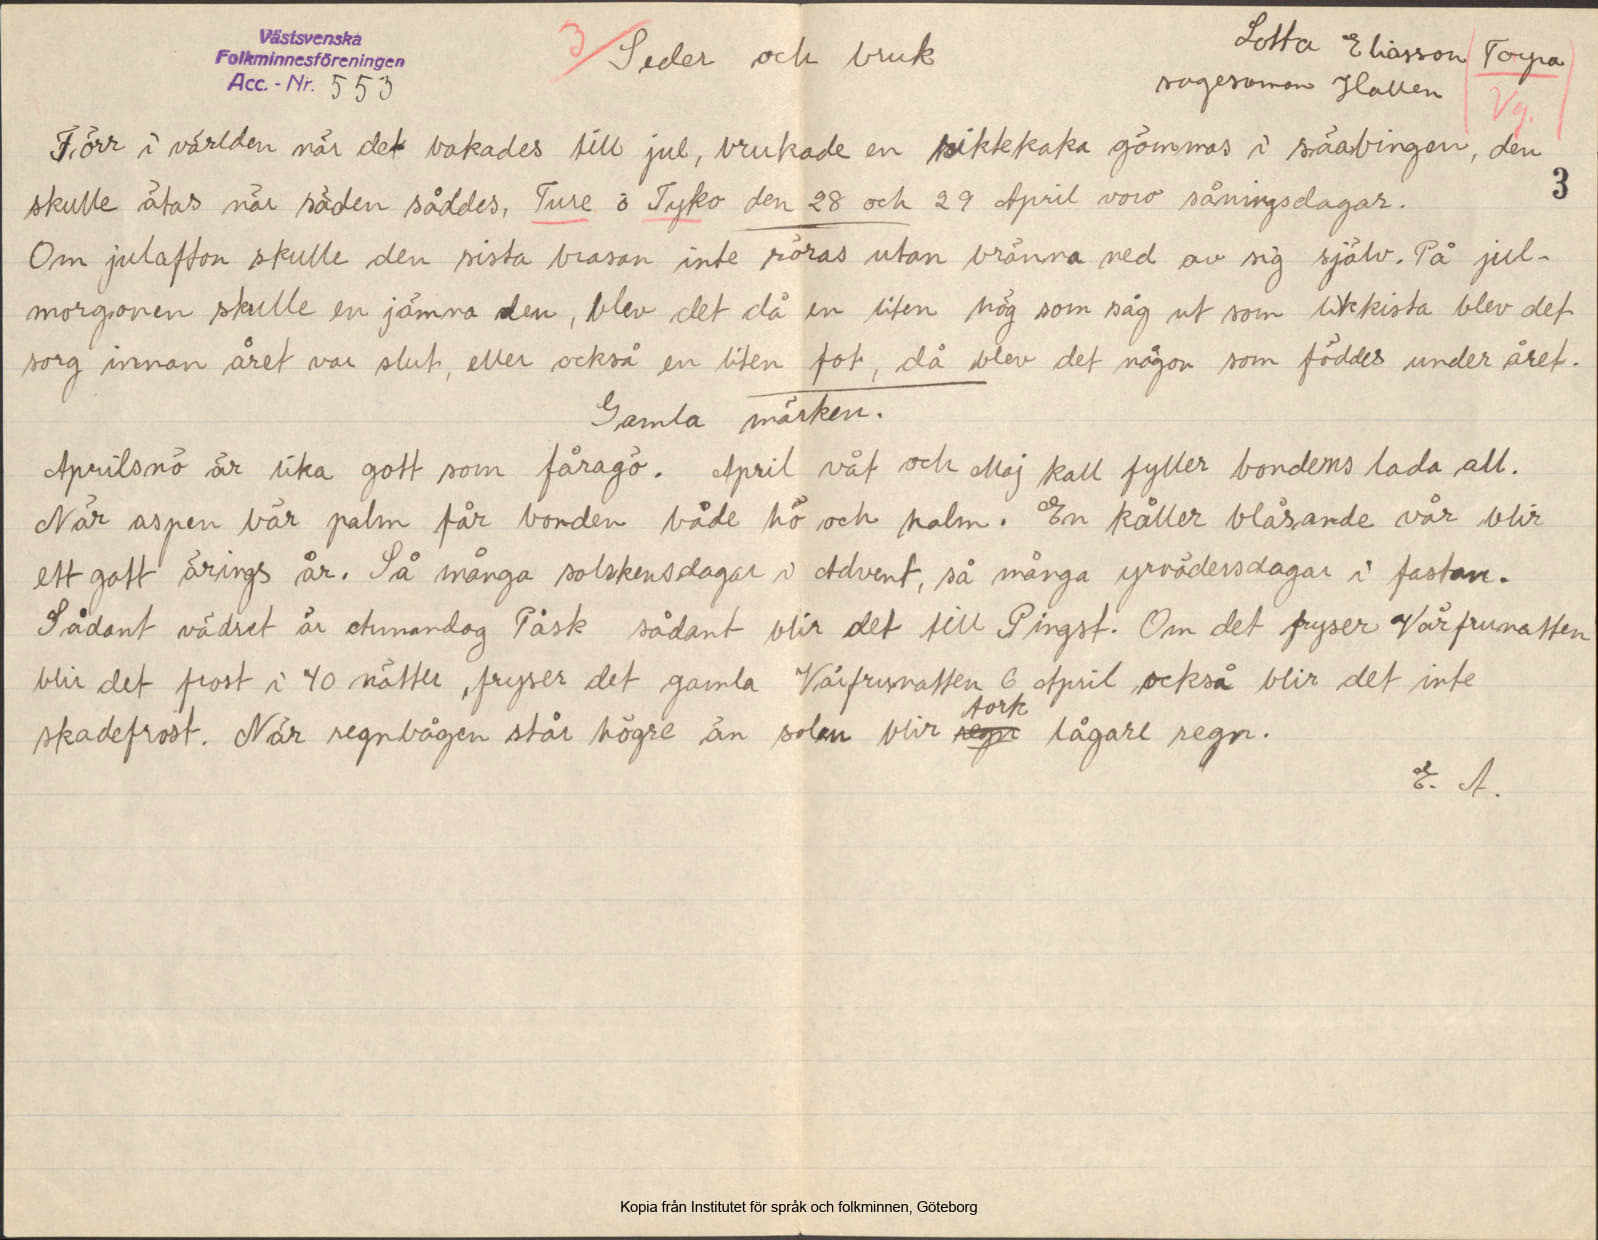 Västsvenska
Folkminnesföreningen
Acc. - Nr. 553
3 Seder och bruk
Lotta Eliasson Torpa
sagesman Hallen Vg.
3
Förr i världen när det bakades till jul, brukade en siktekaka gömmas i säabingen, den
skulle ätas när säden såddes, Ture o Tyko den 28 och 29 April voro såningsdagar.
Om julafton skulle den sista brasan inte röras utan bränna ned av sig själv. På jul-
morgonen skulle en jämna den, blev det då en liten hög som såg ut som likkista blev det
sorg innan året var slut, eller också en liten fot, då blev det någon som föddes under året.
Gamla märken.
Aprilsnö är lika gott som fåragö. April våt och Maj kall fyller bondens lada all.
När aspen bär palm får bonden både hö och halm. En kåller blåsande vår blir
ett gott ärings år. Så många solskensdagar i Advent, så många yrvädersdagar i fastan.
Sådant vädret är Annandag Påsk sådant blir det till Pingst. Om det fryser Vårfrunatten
blir det frost i 40 nätter, fryser det gamla Vårfrunatten 6 April också blir det inte
skadefrost. När regnbågen står högre än solen blir regn tork lågare regn.
E. A.
Kopia från Institutet för språk och folkminnen, Göteborg